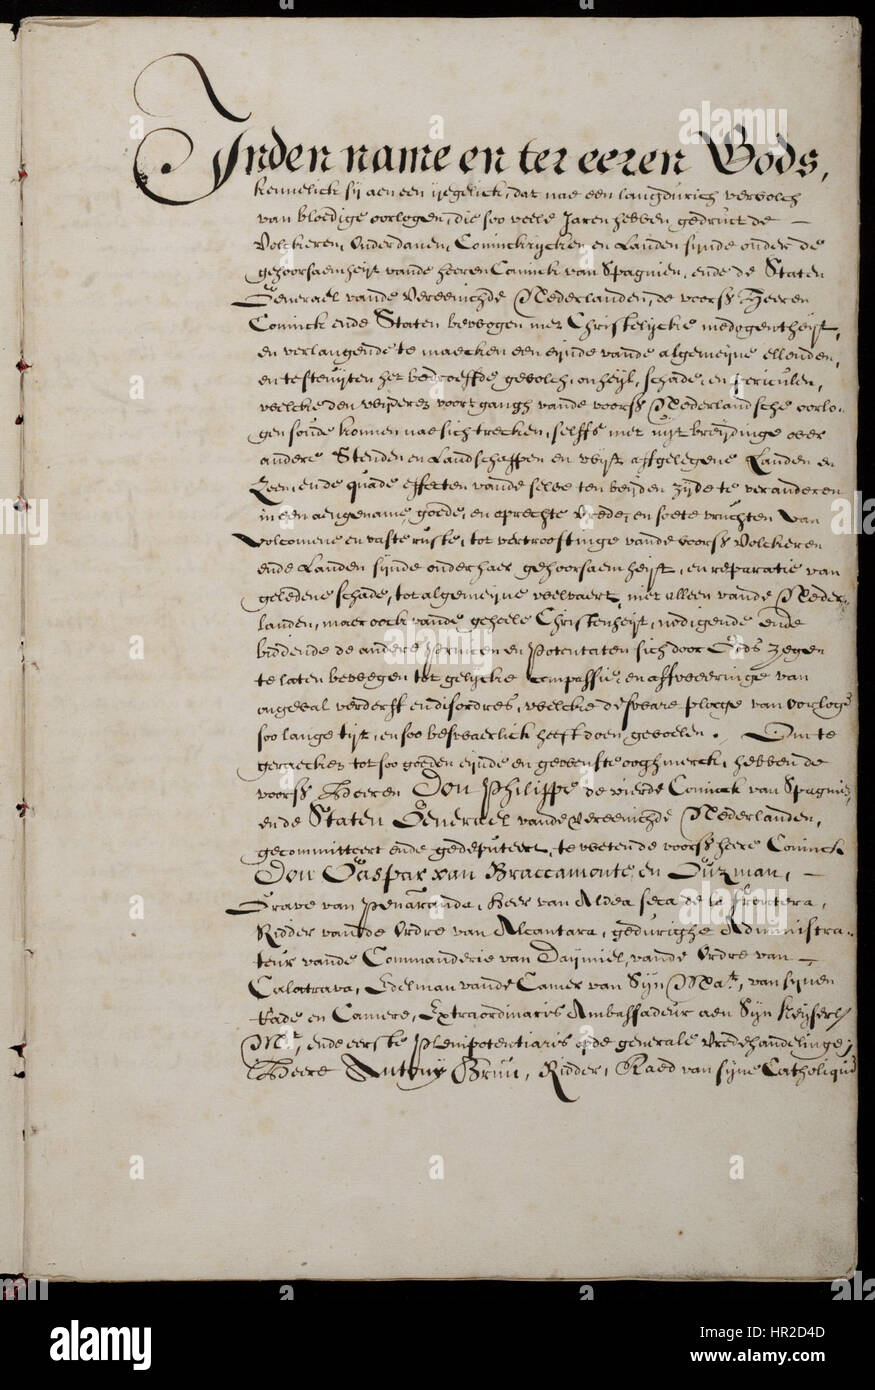 Inden name en ter eeren Gods,
Kennelick sij aen een ijegelick, dat nae een langdurich vervolch
van bloedige oorlogen, die soo veele Jaren hebben gedruct de
Volckeren, Onderdanen, Coninckrijcken en Landen sijnde onder de
gehoorsaemheijt vande heeren Coninck van Spagnien, ende de Staten
Generael vande Vereenichde Nederlanden, de voorsz Heeren
Coninck ende Staten bewogen met Christelijcke medogentheijt,
en verlangende te maecken een eijnde vande algemeijne ellenden,
en te stuijten het bedroeffde gevolch, onheijl, schade, en periculen,
welcke den wijderen voortgangh vande voorsz Nederlandsche oorlo-
gen soude konnen nae sich trecken, selffs met uijtbreijdinge over
andere Stenden en Landschappen en wijt affgelegene Landen en
Zeen, ende quade effecten vande selve ten beijden zijde te veranderen
in een aengename, goede, en oprechte Vrede, en soete vruchten van
volcomene en vaste ruste, tot vertroostinge vande voorsz Volckeren
ende Landen sijnde onder haer gehoorsaemheijt, en reparatie van
geledene schade, tot algemeijne welvaert, niet alleen vande Neder-
landen, maer oock vande geheele Christenheijt, nodigende ende
biddende de andere Princen en Potentaten sich door Gods zegen
te laten bewegen tot gelijcke compassie, en affweeringe van
ongeval verderff en disordres, welcke de sware plage van oorloge
soo lange tijt, en soo beswaerlick heeft doen gevoelen. Om te
geraecken tot soo goeden eijnde en gewenste ooghmerck, hebben de
voorsz Heeren Don Philippe de vierde Coninck van Spagnie,
ende Staten Generael vande Vereenichde Nederlanden,
gecommitteert ende gedeputeert, te weten de voorsz heere Coninck
Don Gaspar van Braccamonte, en Guzman,
Grave van Penaranda, Heer van Aldea seca de la Frontera,
Ridder vande Ordre van Alcantara, gedurighe Administra-
teur vande Commanderie van Daijmiel, vande Ordre van
Calatrava, Edelman vande Camer van Sijn Mat, van sijnen
Rade en Camere, Extraordinaris Ambassadeur aen Sijn Keijserl
Mt, ende eerste Plenipotentiaris op de generale Vredehandelinge;
Heere Antony Brun, Ridder, Raed van sijne Catholique
alamy
alamy
alamy
alamy stock photo
HR2D4D
www.alamy.com